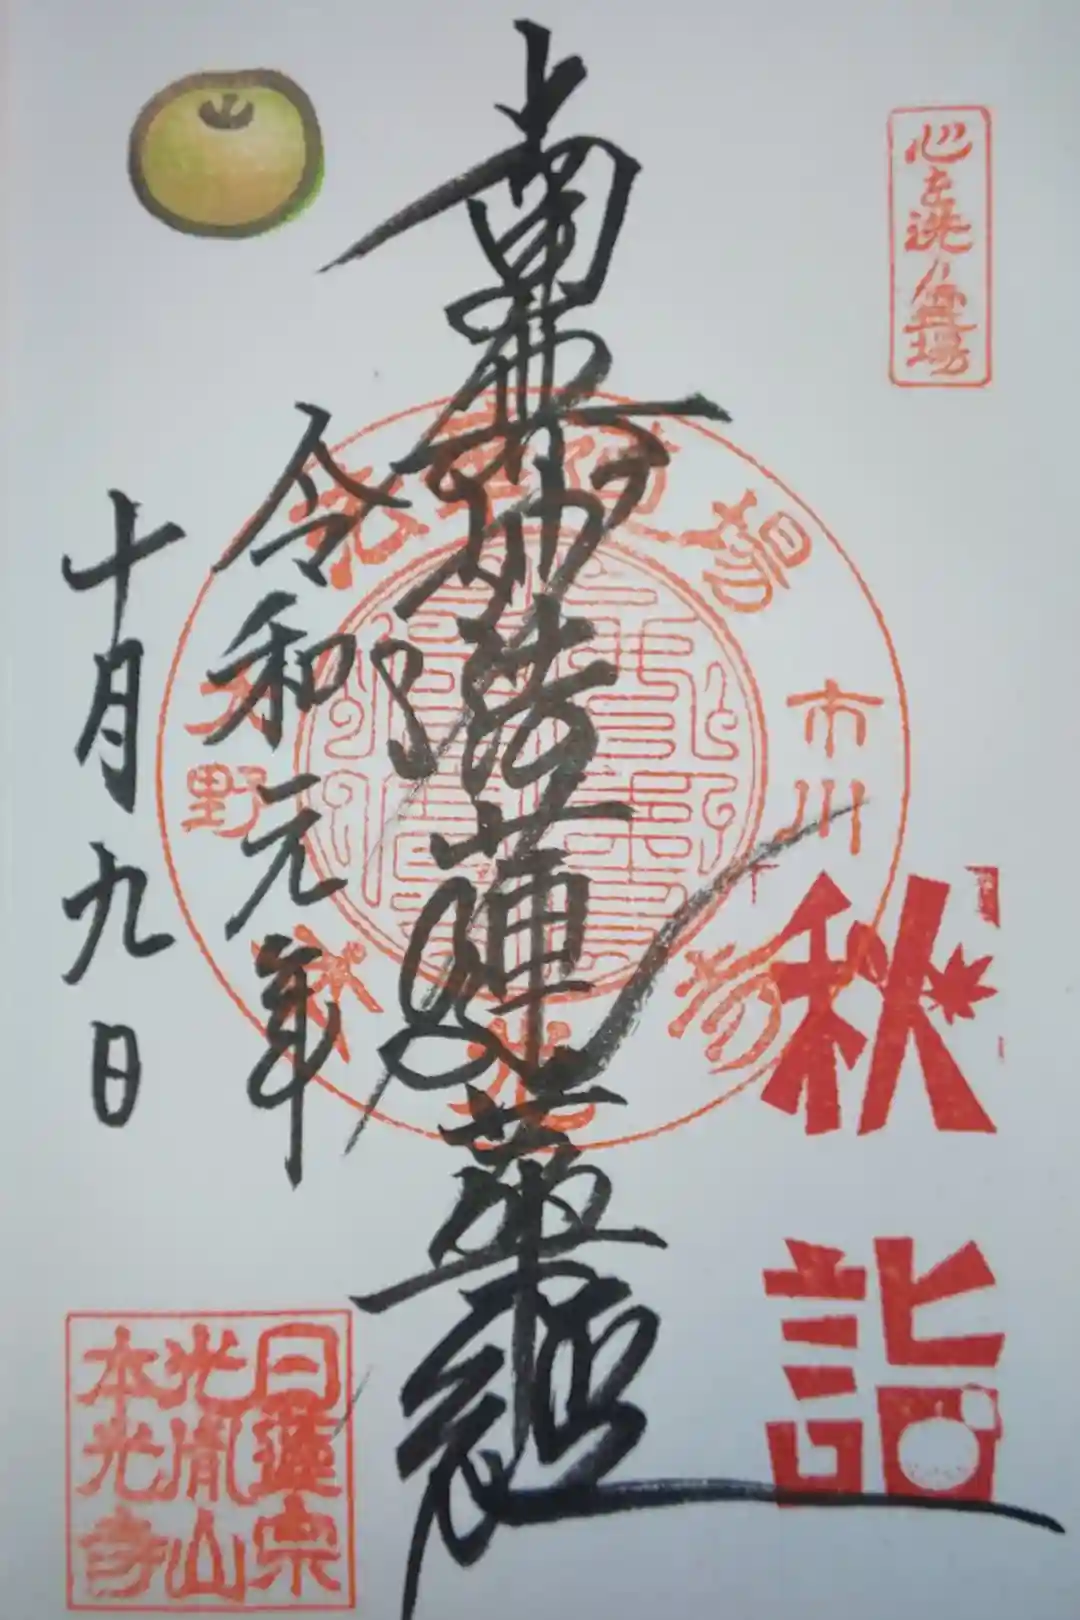 心を洗ふ霊場
秋
詣
南無妙法蓮華経
令和元年
十月九日
市川
大野
本光寺
日蓮宗
光胤山
本光寺